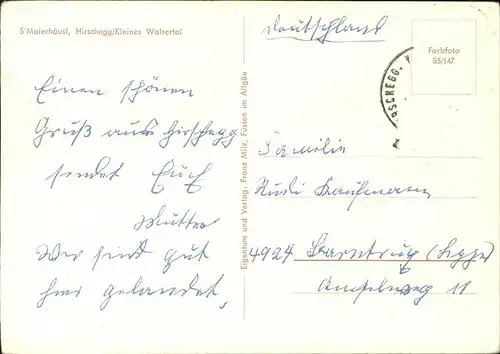 S'Malerhäusl, Hirschegg/Kleines Walsertal
Einen schönen
Gruß aus Hirschegg
sendet Euch
Mutter
Wir sind gut
hier gelandet.
Eigentum und Verlag: Franz Milz, Füssen im Allgäu
Deutschland
Farbfoto
85/147
HIRSCHEGG
Familie
Rudi Kaufmann
4924 Barntrup (Lippe)
11